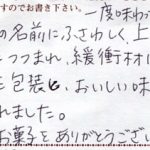 すのでお書き下さい。
一度味わっ
の名前にふさわしく、上
につつまれ、緩衝材に
も包装し、おいしい味
れました。
お菓子をありがとうござい